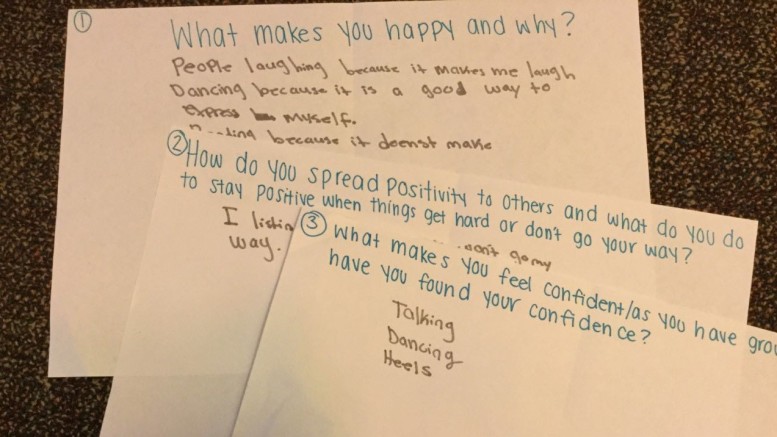 ①
What makes you happy and why?
People laughing because it makes me laugh
Dancing because it is a good way to
express myself.
because it doenst make
②
How do you spread positivity to others and what do you do
to stay positive when things get hard or don't go your way?
I listin
don't go my
way.
③
What makes you feel confident/as you have
have you found your confidence?
Talking
Dancing
Heels